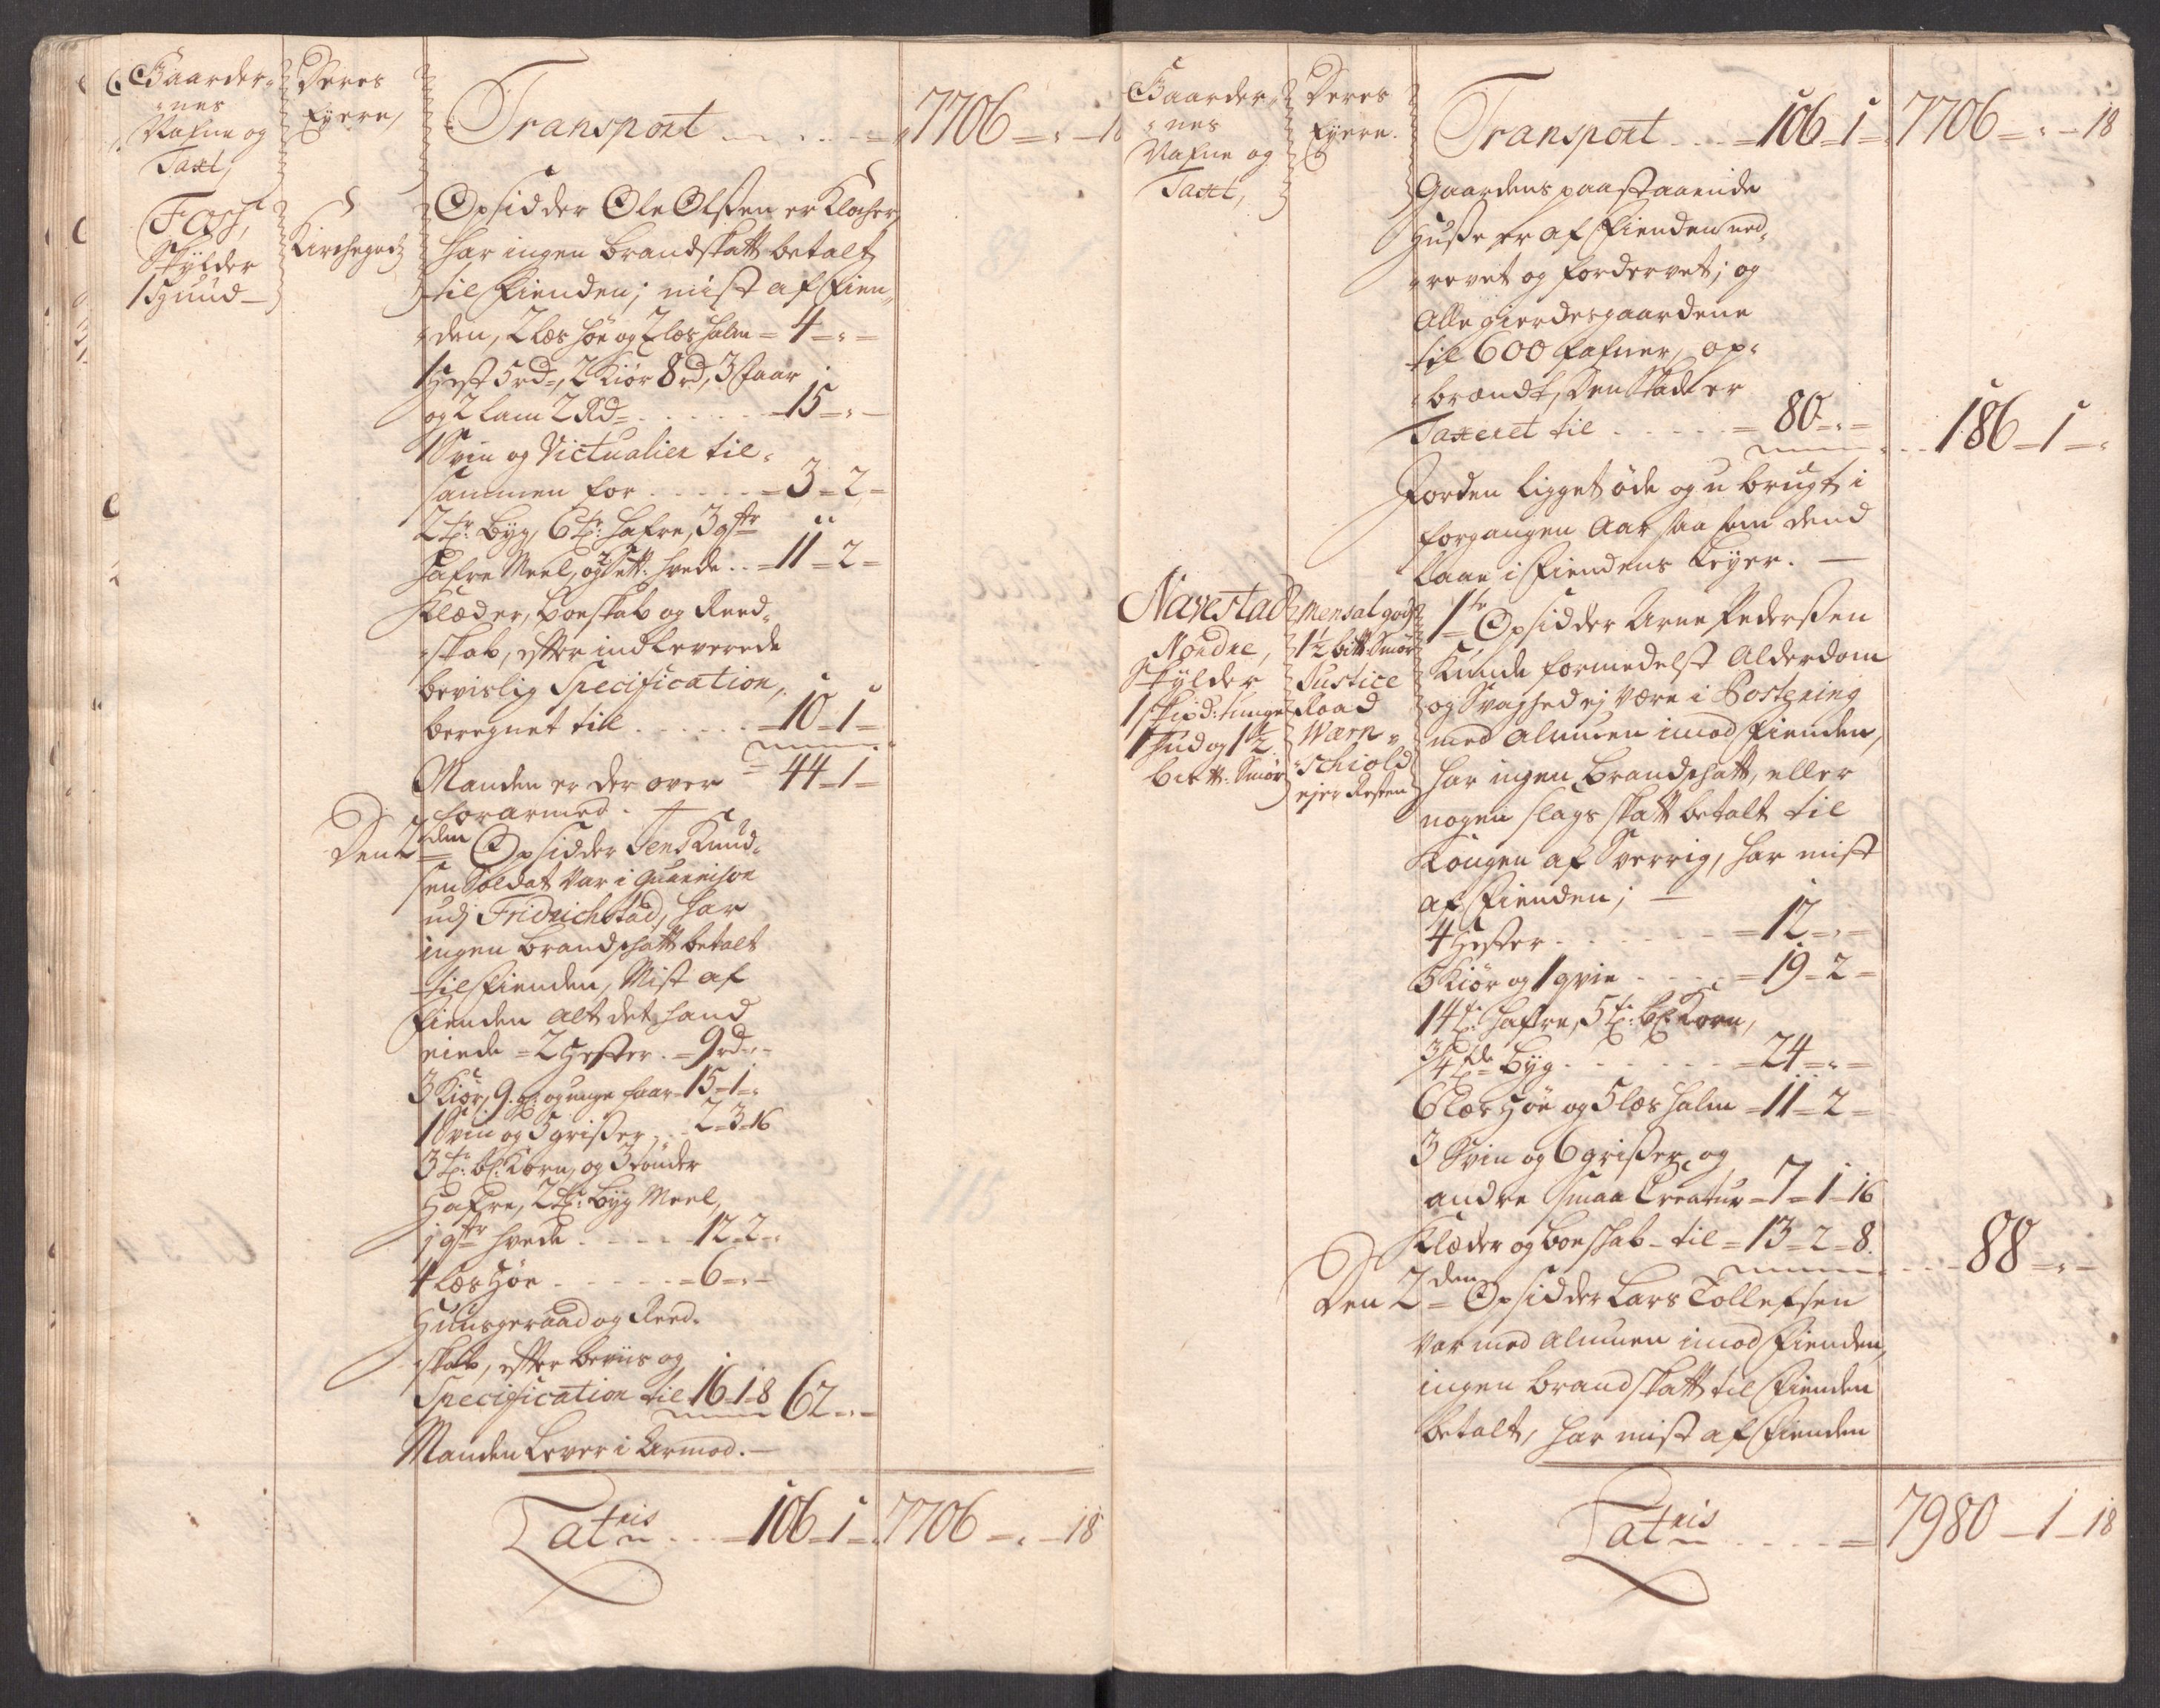 Gaarder-
nes
Nafne og
Taxt,
Deres
Eyere,
Transport - - - - = 7706 = " - 18
Foss,
Skylder
1 Hund -
Kirchegods
Opsidder Ole Olssen er Klocher
har ingen brandskatt betalt
til fienden; mist af fien-
den, 2 læs høe og 2 læs halm = 4 - " -
1 Hest 5 rd=, 2 Kiör 8 rd, 3 faar
og 2 lam 2 Rd= - - - - 15 - " -
1 Svin og Victualier til-
sammen for - - - - = 3 - 2 -
2 tr: byg, 6 tr: hafre, 3 qtr
hafre Meel, og 2 sett: hvede - - = 11 - 2 -
Klæder, boeskab og Reed-
skab, efter indleverede
bevislig Specification,
beregnet till - - - - = 10 - 1 -
Manden er der over = 44 - 1 -
forarmed.
Den 2den Opsidder Jens Knud-
sen Soldat var i Guarnison
udj Fridrichstad, har
ingen brandschatt betalt
til fienden, Mist af
fienden alt det hand
eiede = 2 Hester - = 9 rd - " -
3 Kiör, 9 gl: og unge faar = 15 - 1 - "
1 Svin og 5 grisser - - 2 - 3 - 16
3 tr: bl: Korn, og 3 tönder
Hafre, 2 tr: byg Meel,
1 qtr hvede - - - - 12 - 2 - "
4 læs Höe - - - - = 6 - " -
Huusgeraad og Reed-
skab, efter beviis og
Specification til 16 - 1 - 8 62 - " -
Manden lever i Armod. -
Latris - - - = 106 - 1 - " 7706 = " - 18
Gaarder-
nes
Nafne og
Taxt,
Deres
Eyere.
Transport - - - = 106 - 1 = 7706 = " - 18
Gaardens paastaaende
Husse er af fienden ned-
revet og fordervet; og
Alle gierdesgaardene
til 600 fafner, op-
brændt, den Skade er
Taxeret til - - - - = 80 - " - - - 186 - 1 - "
Jorden ligget öde og u brugt i
forgangen Aar saa som dend
laae i fiendens Leyer. -
Navestad
Nordre,
Skylder
1 Skipd: tunge
1 Hud og 1 1/2
bitt: Smör
Mensal gods
1 1/2 bitt Smör
Justice
Raad
Wærn-
schiold
ejer Resten
1te Opsidder Arne Pederssen
Kunde formedelst Alderdom
og Svaghed ej være i Postering
med almuen imod fienden,
har ingen brandschatt, eller
nogen slags skatt betalt til
Kongen af Sverrig, har mist
af fienden; -
4 Hester - - - - = 12 - " -
5 Kiör og 1 qvie - - - - = 19 - 2 -
14 tr: hafre, 5 tr: bl: Korn,
3/4 tde byg - - - - = 24 - " -
6 læs höe og 5 læs halm = 11 - 2 -
3 Svin og 6 grisser og
andre Smaa Creatur = 7 - 1 - 16
Klæder og boeskab - til = 13 - 2 - 8. - - - 88 - " -
Den 2den Opsidder Lars Tollefsen
var med almuen imod fienden,
ingen brandskatt til fienden
betalt, har mist af fienden
Latris - - - - = 7980 - 1 - 18